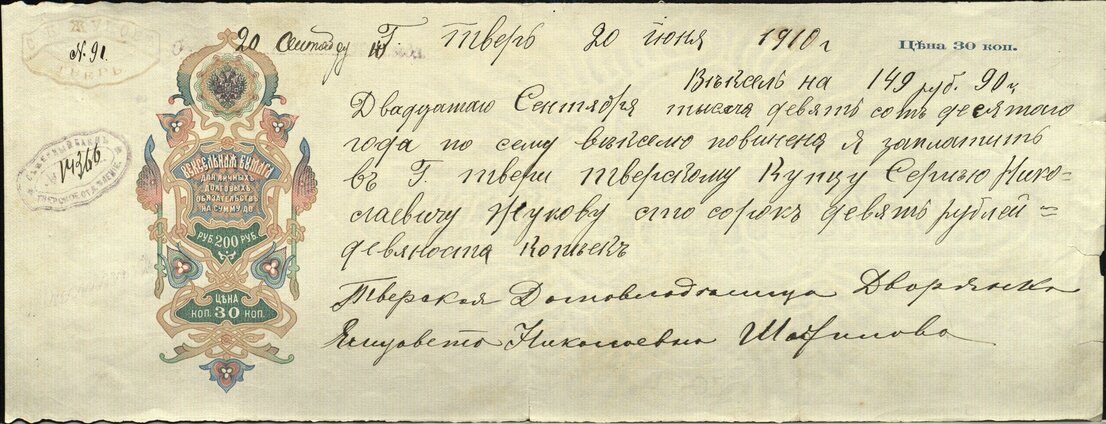 С. Н. ЖУКОВ
№ 91
ТВЕРЬ
20 Г Тверь 20 Июня 1910 г
Цѣна 30 коп.
Вѣксель на 149 руб. 90 к
Двадцатаго Сентября тысяча девять сотъ десятаго
года по сему вѣкселю повинена я заплатить
въ Г твери тверскому Купцу Сергѣю Нико-
лаевичу Жукову сто сорокъ девять рублей =
девяноста Копѣекъ
Тверская Домовладѣлица Дворянка
Елизовета Николаевна
14366
ТВЕРСКОЕ ОТДѢЛЕНІЕ
ВЕКСЕЛЬНАЯ БУМАГА
ДЛЯ ЛИЧНЫХЪ
ДОЛГОВЫХЪ
ОБЯЗАТЕЛЬСТВЪ
НА СУММУ ДО
РУБ. 200 РУБ.
ЦѢНА
КОП. 30 КОП.